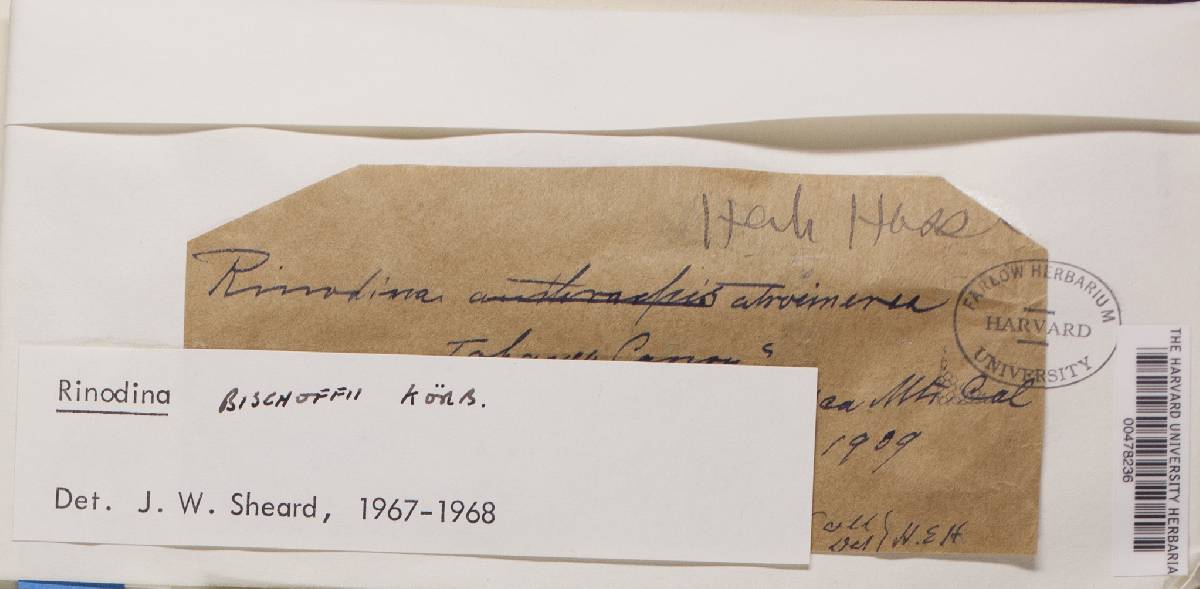 Herb Hasse
Rinodina anthracopis atroimerea
Canon
Mts Cal
1909
Coll
Det } H.E.H
FARLOW HERBARIUM
HARVARD
UNIVERSITY
Rinodina BISCHOFFII KÖRB.
Det. J. W. Sheard, 1967-1968
THE HARVARD UNIVERSITY HERBARIA
00478236